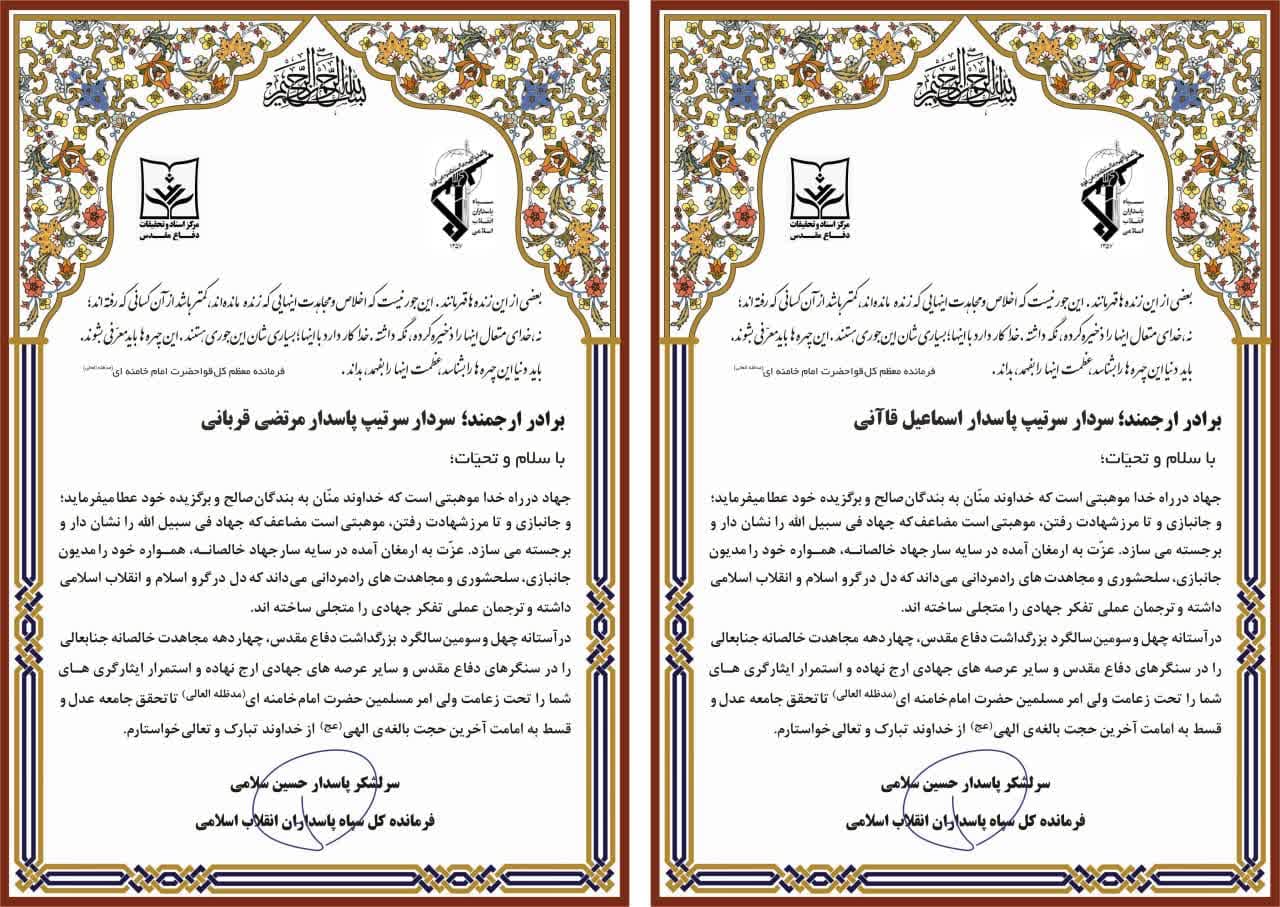 بسم الله الرحمن الرحیم
سپاه
پاسداران
انقلاب
اسلامی
۱۳۵۷
مرکز اسناد و تحقیقات
دفاع مقدس
بعضی از این زنده ها قهرمانند. این جور نیست که اخلاص و مجاهدت اینهایی که زنده مانده اند، کمتر باشد از آن کسانی که رفته اند؛
نه، خدای متعال اینها را ذخیره کرده، نگه داشته. خدا کار دارد با اینها؛ بسیاری شان این جوری هستند. این چهره ها باید معرّفی بشوند.
باید دنیا این چهره ها را بشناسد، عظمت اینها را بفهمد، بداند.
فرمانده معظم کل قوا حضرت امام خامنه ای (مدظله العالی)
برادر ارجمند؛ سردار سرتیپ پاسدار اسماعیل قاآنی
با سلام و تحیّات؛
جهاد در راه خدا موهبتی است که خداوند منّان به بندگان صالح و برگزیده خود عطا میفرماید؛
و جانبازی و تا مرز شهادت رفتن، موهبتی است مضاعف که جهاد فی سبیل الله را نشان دار و
برجسته می سازد. عزّت به ارمغان آمده در سایه سار جهاد خالصانـه، همـواره خود را مدیون
جانبازی، سلحشوری و مجاهدت های رادمردانی می‌داند که دل در گرو اسلام و انقلاب اسلامی
داشته و ترجمان عملی تفکر جهادی را متجلی ساخته اند.
در آستانه چهل و سومین سالگرد بزرگداشت دفاع مقدس، چهار دهه مجاهدت خالصانه جنابعالی
را در سنگرهای دفاع مقدس و سایر عرصه های جهادی ارج نهاده و استمرار ایثارگری هـای
شما را تحت زعامت ولی امر مسلمین حضرت امام خامنه ای (مدظله العالی) تا تحقق جامعه عدل و
قسط به امامت آخرین حجت بالغه‌ی الهی (عج) از خداوند تبارک و تعالی خواستارم.
سرلشکر پاسدار حسین سلامی
فرمانده کل سپاه پاسداران انقلاب اسلامی
بسم الله الرحمن الرحیم
سپاه
پاسداران
انقلاب
اسلامی
۱۳۵۷
مرکز اسناد و تحقیقات
دفاع مقدس
بعضی از این زنده ها قهرمانند. این جور نیست که اخلاص و مجاهدت اینهایی که زنده مانده اند، کمتر باشد از آن کسانی که رفته اند؛
نه، خدای متعال اینها را ذخیره کرده، نگه داشته. خدا کار دارد با اینها؛ بسیاری شان این جوری هستند. این چهره ها باید معرّفی بشوند.
باید دنیا این چهره ها را بشناسد، عظمت اینها را بفهمد، بداند.
فرمانده معظم کل قوا حضرت امام خامنه ای (مدظله العالی)
برادر ارجمند؛ سردار سرتیپ پاسدار مرتضی قربانی
با سلام و تحیّات؛
جهاد در راه خدا موهبتی است که خداوند منّان به بندگان صالح و برگزیده خود عطا میفرماید؛
و جانبازی و تا مرز شهادت رفتن، موهبتی است مضاعف که جهاد فی سبیل الله را نشان دار و
برجسته می سازد. عزّت به ارمغان آمده در سایه سار جهاد خالصانـه، همـواره خود را مدیون
جانبازی، سلحشوری و مجاهدت های رادمردانی می‌داند که دل در گرو اسلام و انقلاب اسلامی
داشته و ترجمان عملی تفکر جهادی را متجلی ساخته اند.
در آستانه چهل و سومین سالگرد بزرگداشت دفاع مقدس، چهار دهه مجاهدت خالصانه جنابعالی
را در سنگرهای دفاع مقدس و سایر عرصه های جهادی ارج نهاده و استمرار ایثارگری هـای
شما را تحت زعامت ولی امر مسلمین حضرت امام خامنه ای (مدظله العالی) تا تحقق جامعه عدل و
قسط به امامت آخرین حجت بالغه‌ی الهی (عج) از خداوند تبارک و تعالی خواستارم.
سرلشکر پاسدار حسین سلامی
فرمانده کل سپاه پاسداران انقلاب اسلامی